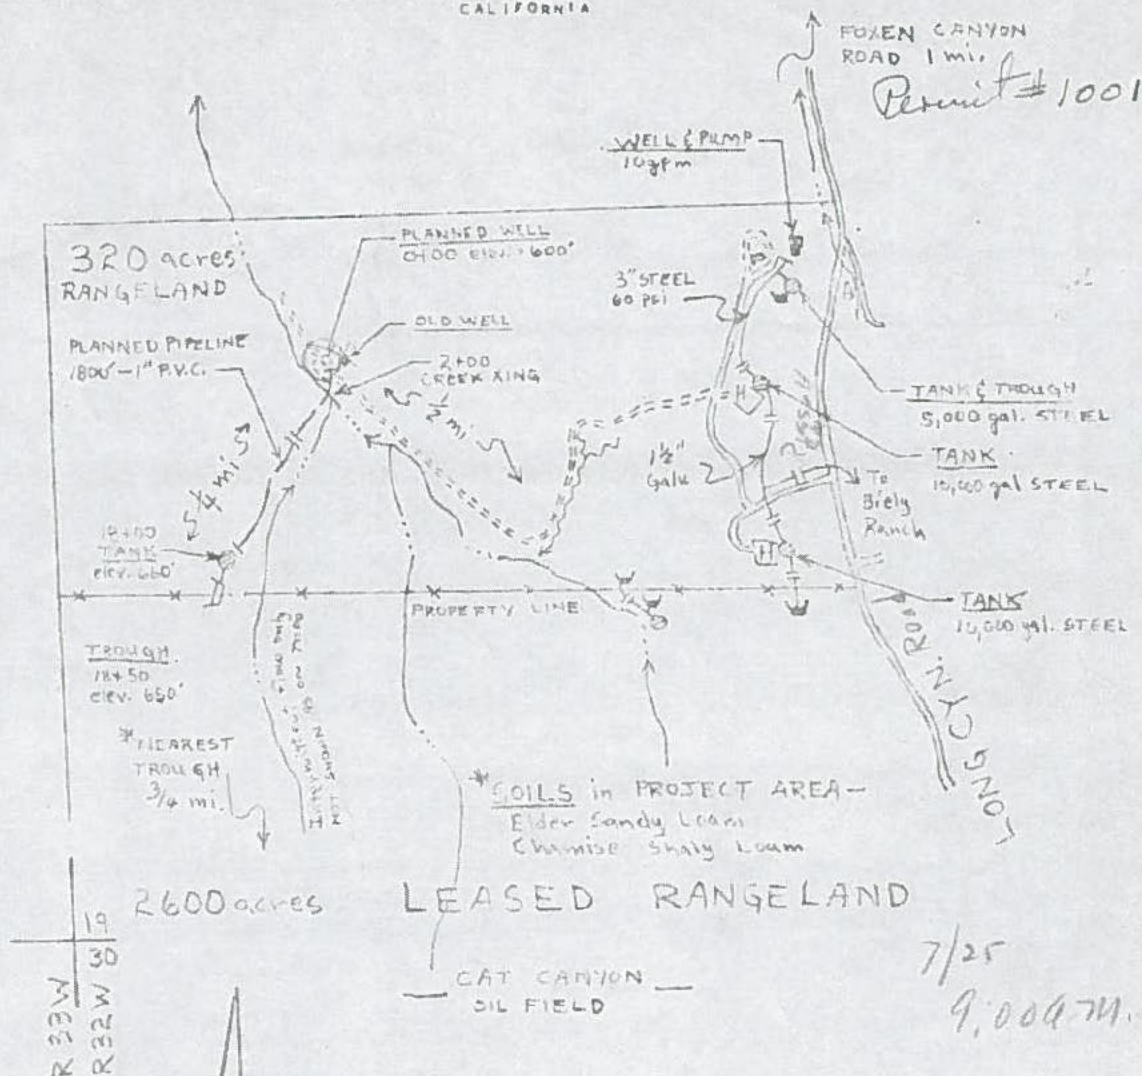 CALIFORNIA
FOXEN CANYON
ROAD 1 mi.
Permit #1001
WELL & PUMP
10gpm
320 acres
RANGELAND
PLANNED WELL
0+00 elev. 600'
3" STEEL
60 PSI
PLANNED PIPELINE
1800'-1" P.V.C.
OLD WELL
2+00
CREEK XING
1/2 mi
1/4 mi
H
TANK & TROUGH
5,000 gal. STEEL
TANK
10,000 gal STEEL
1 1/2"
Galv
To
Biely
Ranch
18+00
TANK
elev. 660'
H
PROPERTY LINE
TANK
10,000 gal. STEEL
TROUGH
18+50
elev. 650'
LONG CYN. ROAD
*NEAREST
TROUGH
3/4 mi.
NOT SHOWN ON THIS
*SOILS in PROJECT AREA-
Elder Sandy Loam
Chamise Shaly Loam
2600 acres LEASED RANGELAND
19
30
R 33W
R 32W
CAT CANYON
OIL FIELD
7/25
9:00 a.m.